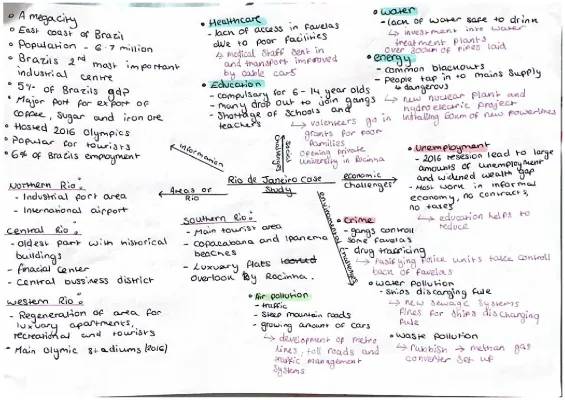 • A megacity
• East coast of Brazil
• Population - 6.7 million
• Brazils 2nd most important
industrial centre
• 5% of Brazils gdp
• Major port for export of
coffee, Sugar and iron ore
• Hosted 2016 Olympics
• Popular for tourists
• 6% of Brazils employment
• Healthcare
- lack of access in favelas
due to poor facilities
↳ medical staff sent in
and transport improved
by cable cars
• Education
- compulsary for 6-14 year olds
- many drop out to join gangs
- Shortage of schools and
teachers
↳ volenteers go in
grants for poor
families
opening private
university in Rocinna
• water
- lack of water safe to drink
↳ investment into water
treatment plants
over 300km of pipes laid
• energy
- common blackouts
- people tap in to mains supply
↳ dangerous
↳ new nuclear plant and
hydroelectric project
installing 60km of new powerlines
Information
Social
Challenges
Rio de Janeiro Case
Study
economic
challenges
Areas of
Rio
environmental challenges
• Unemployment
- 2016 resesion lead to large
amounts of unemployment
and widened wealth gap
- Most work in informal
economy, no contracts,
no taxes
↳ education helps to
reduce
Northern Rio:
- Industrial port area
- International airport
Central Rio:
- oldest part with historical
buildings
- finacial center
- Central bussiness district
Western Rio:
- Regeneration of area for
luxuary apartments,
recreational and tourists
- Main Olymic stadiums (2016)
Southern Rio:
- Main tourist area
- copacabana and Ipanema
beaches
- Luxuary flats
overlook by Rocinna.
• Crime
- gangs controll
some favelas
- drug trafficing
↳ Pasifying Police units take controll
back of favelas
• Air pollution
- traffic
- steep mountain roads
- growing amount of cars
↳ development of metro
lines, toll roads and
traffic management
systems
• water pollution
- ships discarging fule
↳ new sewage systems
fines for ships discharging
fule
• waste pollution
- rubbish → methan gas
converter set up